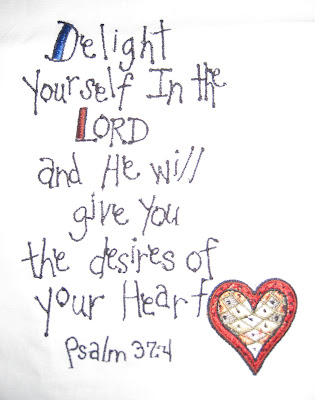 Delight
Yourself In the
LORD
and He will
give You
the desires of
your Heart
Psalm 37:4